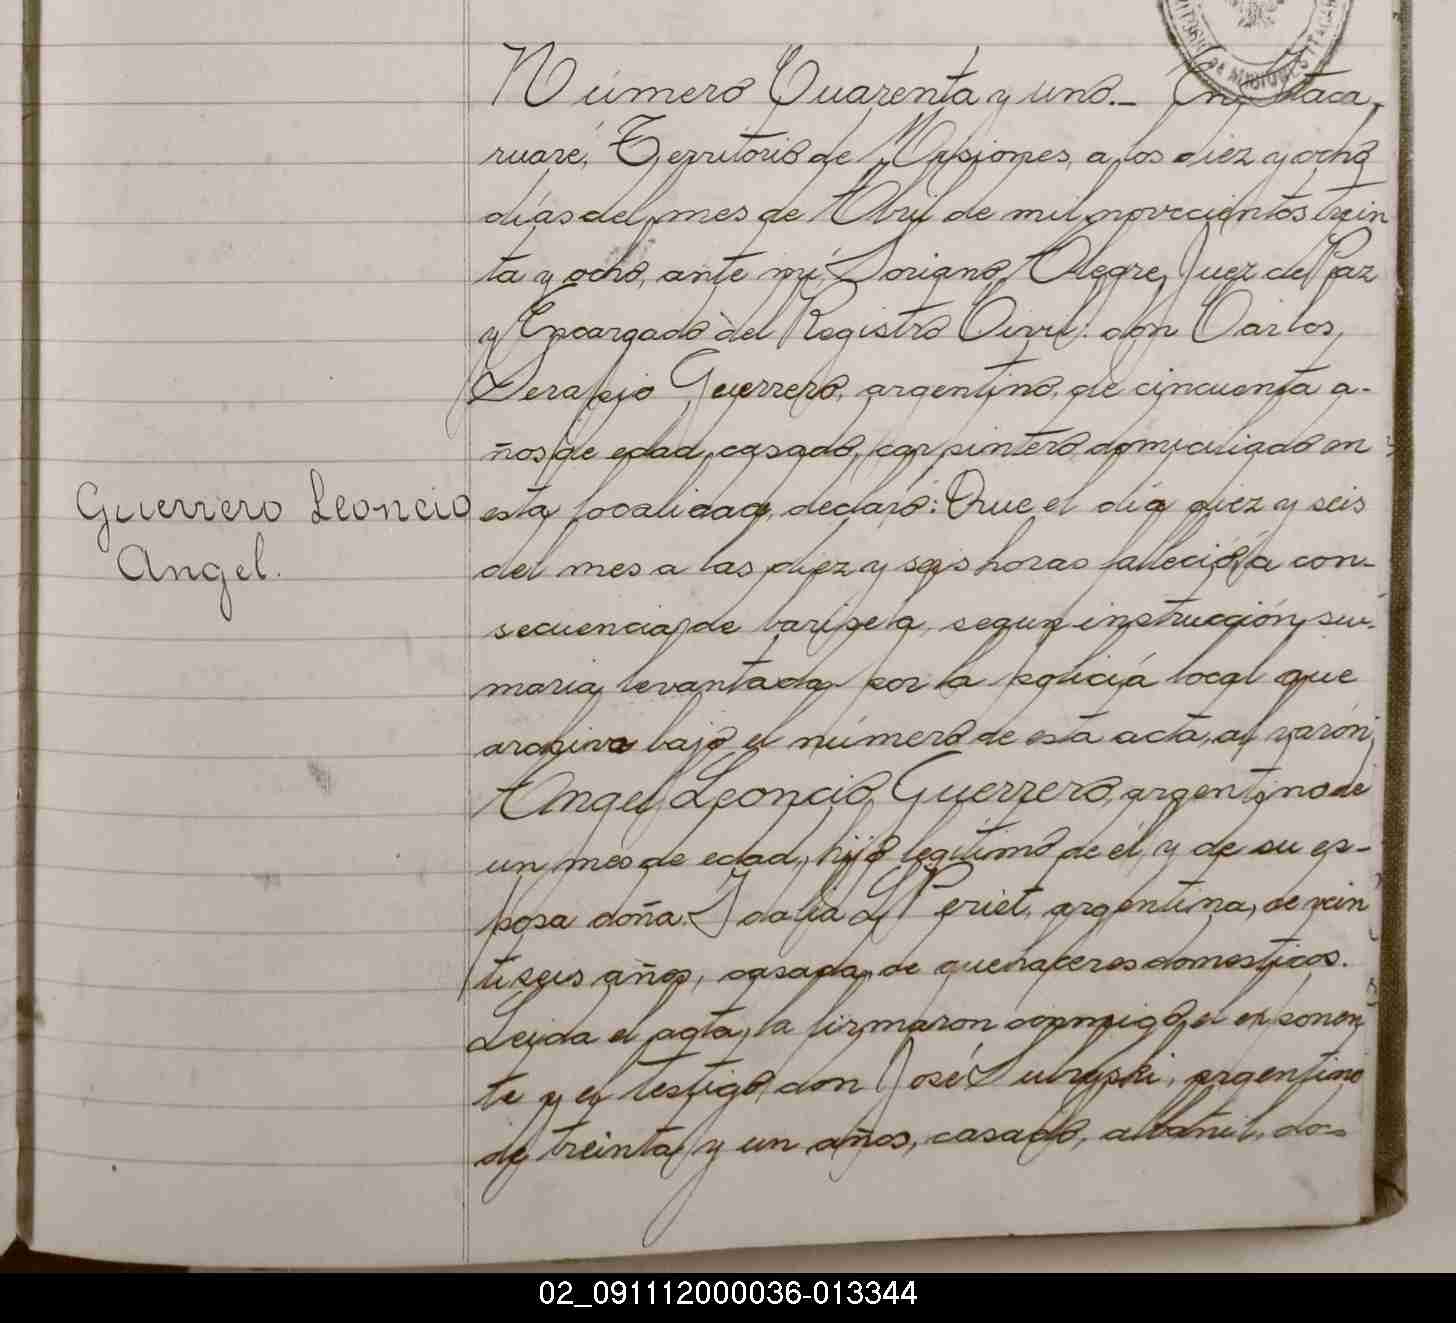 Número Cuarenta y uno._ En Itaca-
ruaré, Territorio de Misiones, a los diez y ocho
días del mes de Abril de mil novecientos trein
ta y ocho, ante mí, Soriano Alegre, Juez de Paz
y Encargado del Registro Civil: don Carlos
Serapio Guerrero, argentino, de cincuenta a-
ños de edad, casado, carpintero domiciliado en
Guerrero Leoncio
Angel.
esta localidad, declaró: Que el día diez y seis
del mes a las diez y seis horas falleció, a con-
secuencia de varicela, segun instrucción su-
maria levantada por la policiá local que
archivo bajo el número de esta acta, al varón
Angel Leoncio Guerrero, argentino de
un mes de edad, hijo legítimo de él, y de su es-
posa doña Idalia L. Periet, argentina, de vein
tiseis años, casada, de quehaceres domesticos.
Leída el acta, la firmaron conmigo, el exponen
te y el testigo don José argentino
de treinta y un años, casado, albañil, do-
02_091112000036-013344